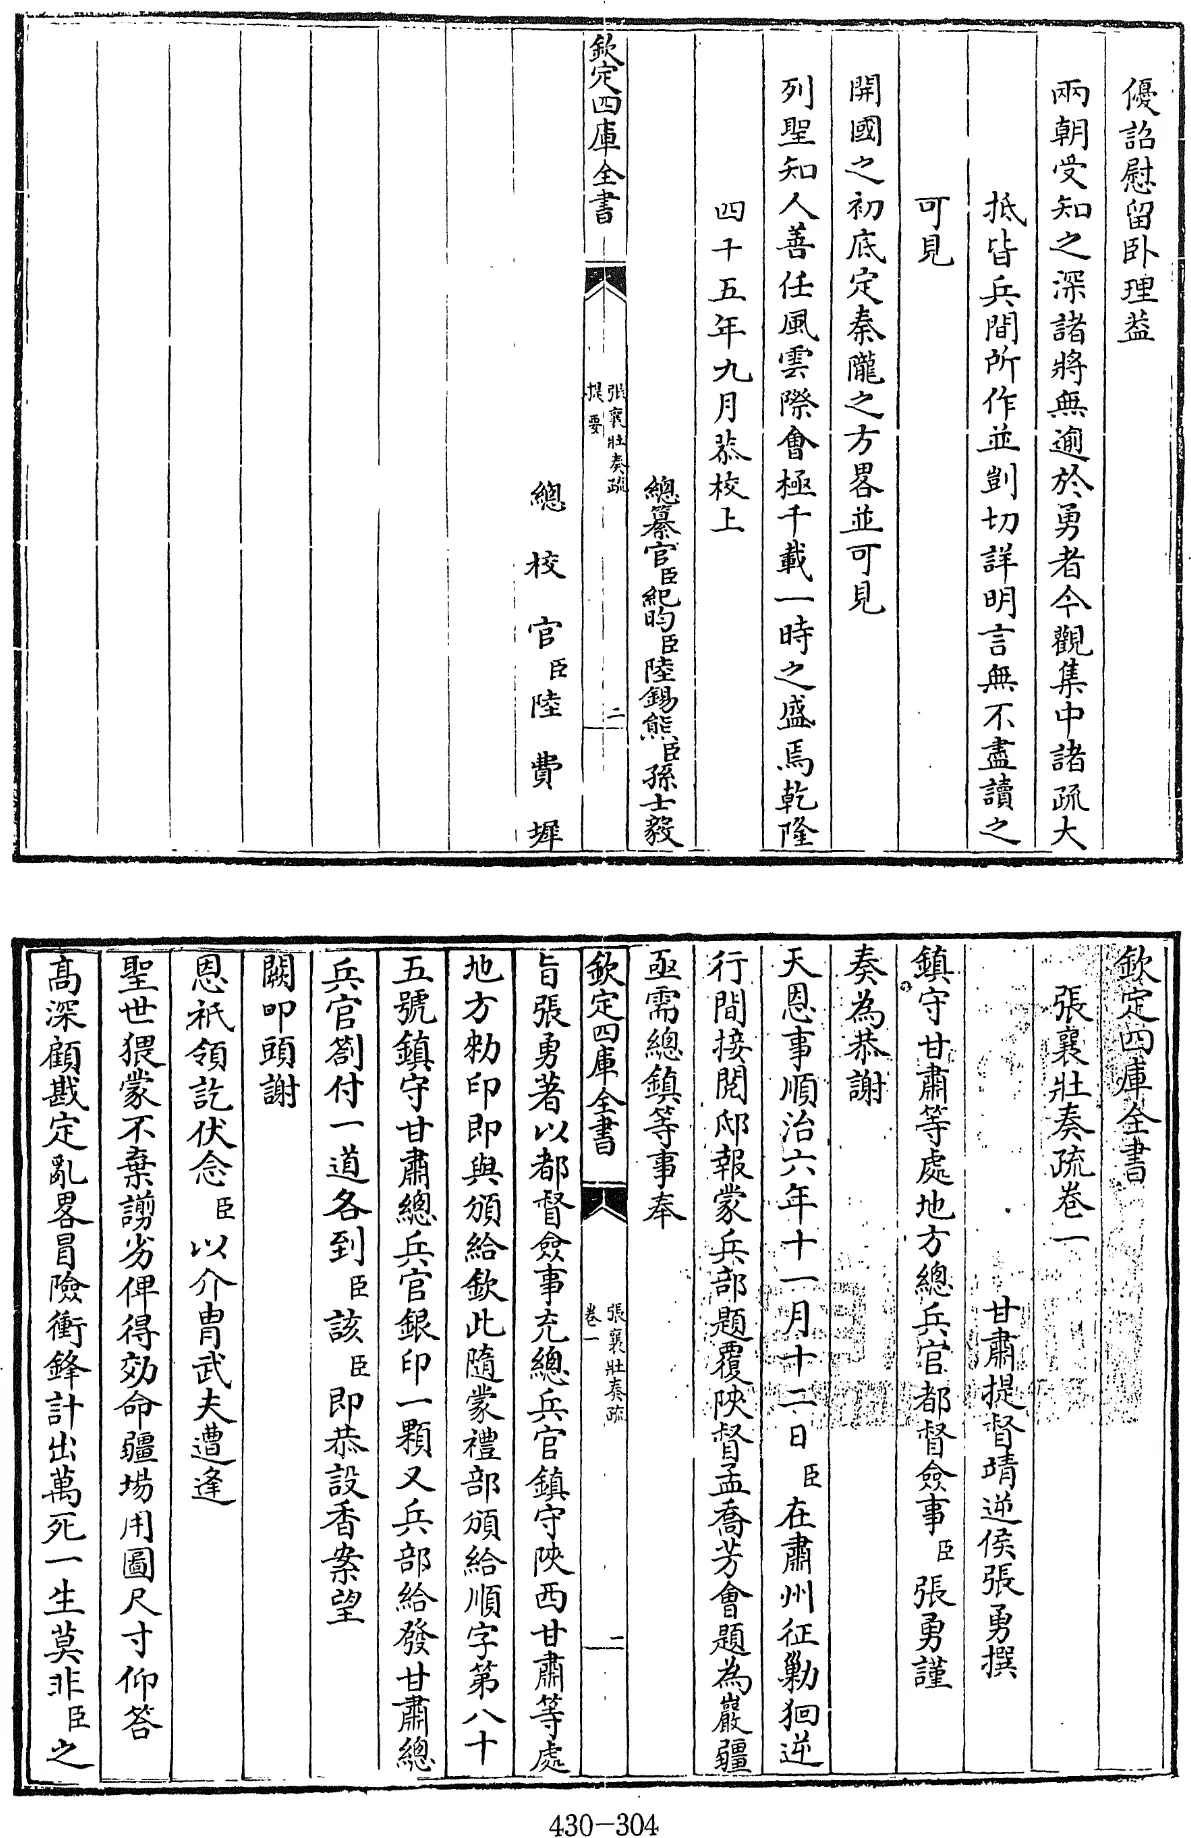 優詔慰留卧理葢
兩朝受知之深諸將無逾於勇者今觀集中諸疏大
抵皆兵間所作並剴切詳明言無不盡讀之
可見
開國之初底定秦隴之方畧並可見
列聖知人善任風雲際會極千載一時之盛焉乾隆
四十五年九月恭校上
總纂官臣紀昀臣陸錫熊臣孫士毅
欽定四庫全書
張襄壯奏疏
提要
二
總校官臣陸費墀
欽定四庫全書
張襄壯奏疏卷一
甘肅提督靖逆侯張勇撰
鎮守甘肅等處地方總兵官都督僉事臣張勇謹
奏為恭謝
天恩事順治六年十一月十二日臣在肅州征勦狥逆
行間接閱邸報蒙兵部題覆陜督孟喬芳會題為巖疆
亟需總鎮等事奉
欽定四庫全書
張襄壯奏疏
卷一
旨張勇著以都督僉事充總兵官鎮守陜西甘肅等處
地方勑印即與頒給欽此隨蒙禮部頒給順字第八十
五號鎮守甘肅總兵官銀印一顆又兵部給發甘肅總
兵官劄付一道各到臣該臣即恭設香案望
闕叩頭謝
恩祇領訖伏念臣以介胄武夫遭逢
聖世猥蒙不棄謭劣俾得効命疆場用圖尺寸仰答
高深顧戡定亂畧冒險衝鋒計出萬死一生莫非臣之
430-304